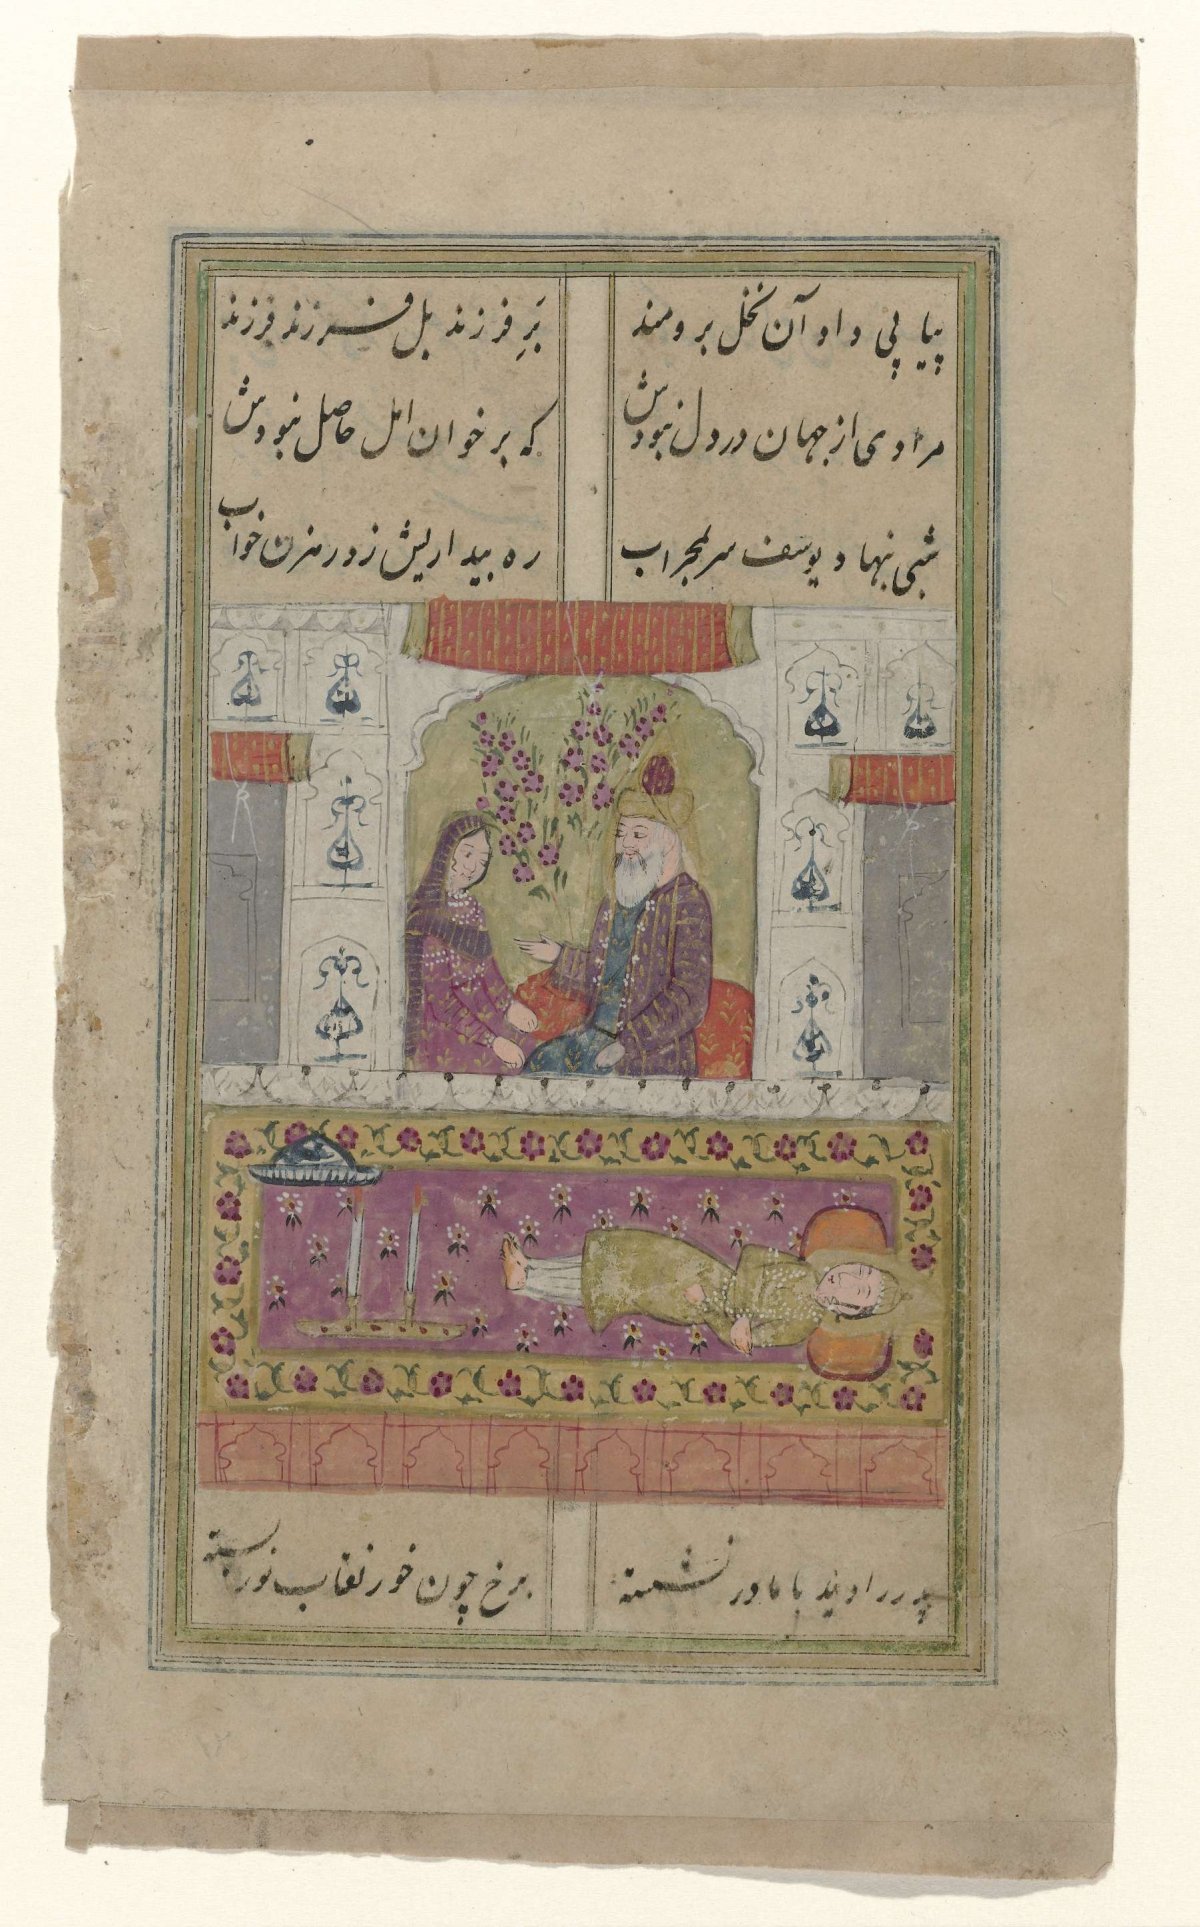 پیاپی داد آن نخل برومند
بَرِ فرزند بل فرزند فرزند
مرادی از جهان در دل نبودش
که بر خوان امل حاصل نبودش
شبی بنهاد یوسف سر بمحراب
ره بیداریش زد رهزن خواب
پدر را دید با مادر نشسته
برخ چون خور نقاب نور بسته